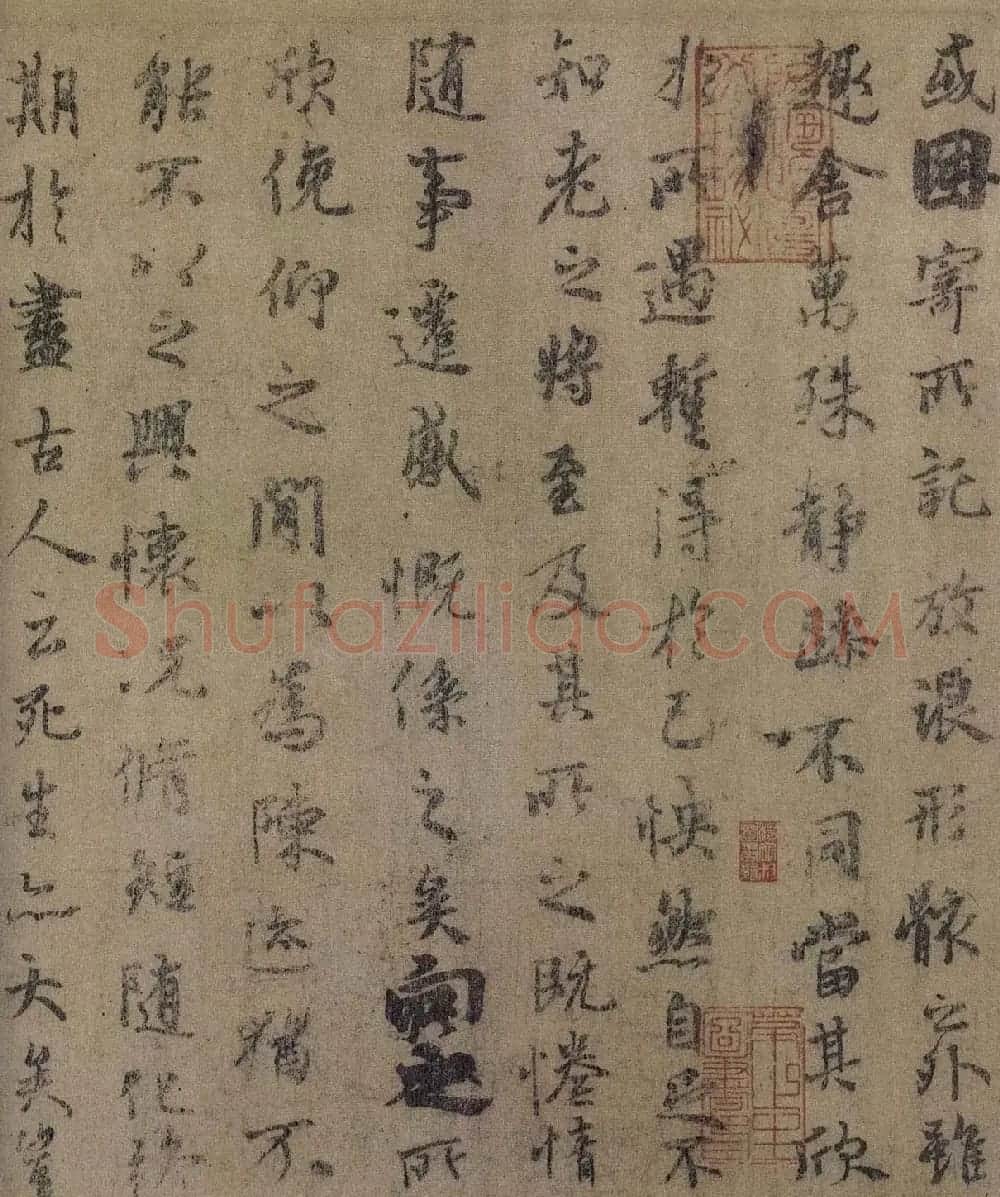 或因寄所託放浪形骸之外雖
趣舍萬殊靜躁不同當其欣
於所遇蹔得於己怏然自足不
知老之將至及其所之既惓情
隨事遷感慨係之矣向之所
欣俛仰之閒以為陳迹猶不
能不以之興懷況脩短隨化終
期於盡古人云死生亦大矣豈
Shufaziliao.COM